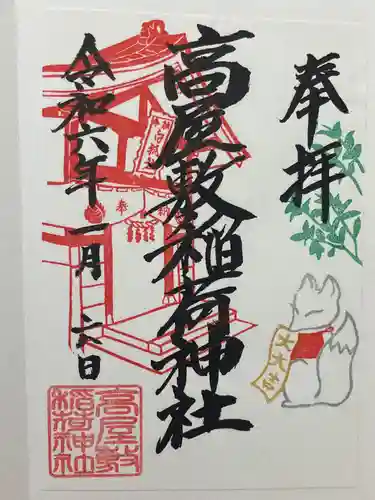 奉拝
高屋敷稲荷神社
令和六年一月二六日
奉
大大吉
高屋敷
稲荷神社